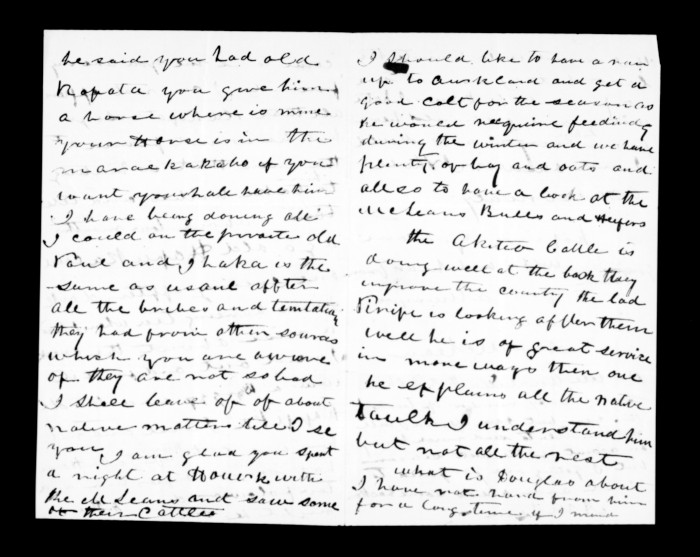 he said you had old
Ropata you give him
a horse where is mine
your Horse is in the
maraekakaho if you
want you shall have him
I have being doning all
I could on the private old
Paul and Ihaka is the
same as usual affter
all the bribes and temtation
they had from other sources
which you are aware
of they are not so bad
I shall leave of of about
native matters till I se
you I am glad you spent
a night at Howick with
the McLeans and saw some
of their Cattles
I should like to have a run
up to Auckland and get a
good Colt for the season as
he would require feeding
during the winter and we have
plenty of hay and oats and
allso to have a look at the
McLeans Bulls and Heifers
the Akitio Cattle is
doing well at the back they
improve the country the lad
is looking after them
well he is of great service
in more ways then one
he explains all the native
Taulk I understand him
but not all the rest
what is Douglas about
I have not hard from him
for a long time if I